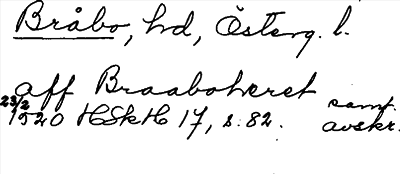 Bråbo, hd, Österg. l.
aff Braaboheret
23/2 1520 HSkH 17, s. 82. samt. avskr.